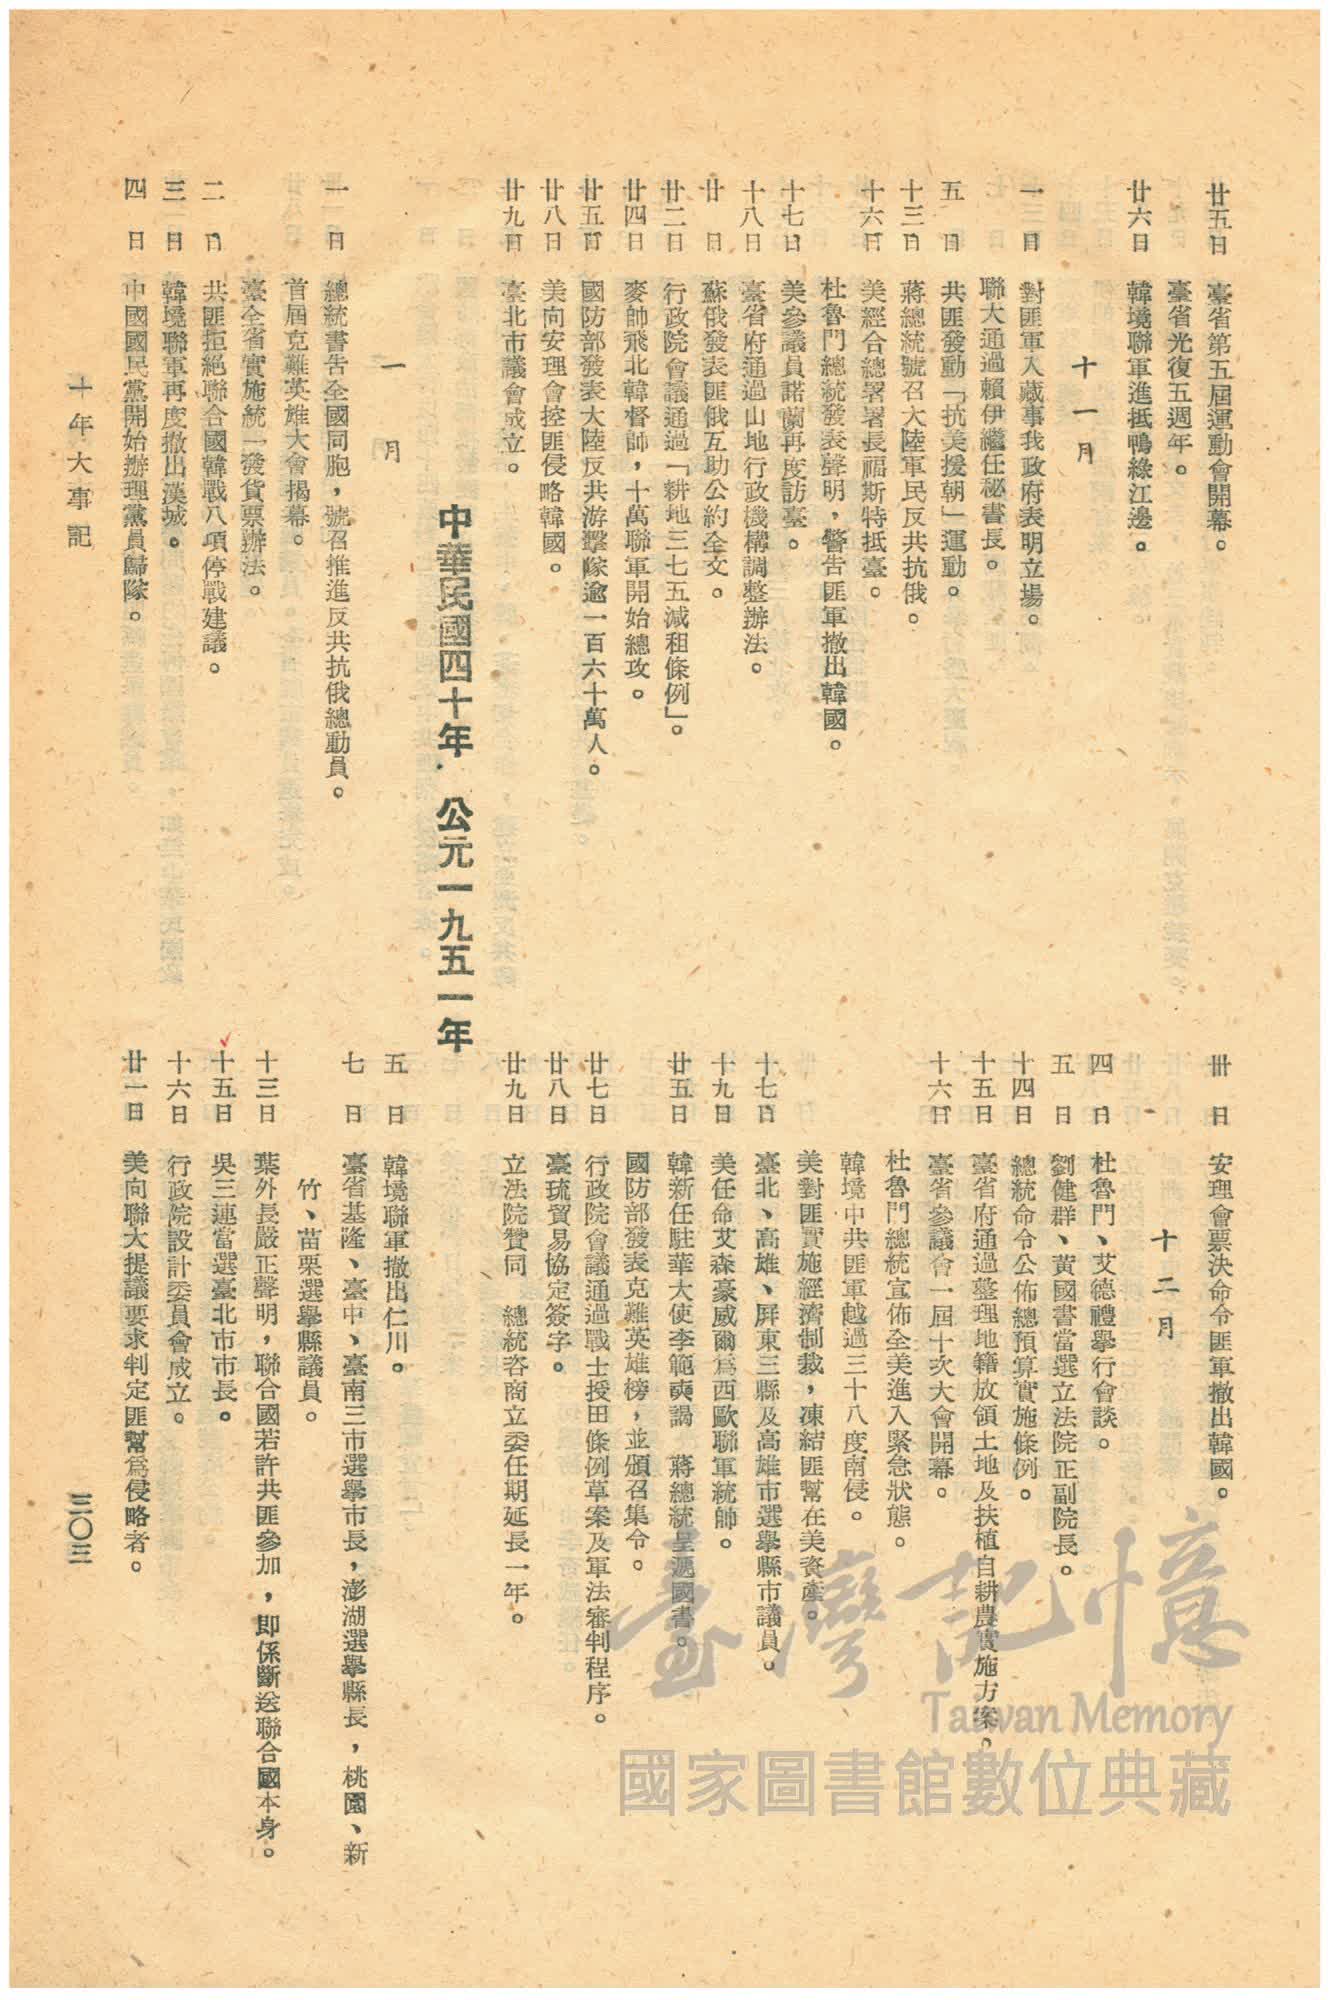 廿五日　臺省第五屆運動會開幕。
臺省光復五週年。
廿六日　韓境聯軍進抵鴨綠江邊。
十一月
一　日　對匪軍入藏事我政府表明立場。
聯大通過賴伊繼任秘書長。
五　日　共匪發動「抗美援朝」運動。
十三日　蔣總統號召大陸軍民反共抗俄。
十六日　美經合總署署長福斯特抵臺。
杜魯門總統發表聲明，警告匪軍撤出韓國。
十七日　美參議員諾蘭再度訪臺。
十八日　臺省府通過山地行政機構調整辦法。
廿　日　蘇俄發表匪俄互助公約全文。
廿二日　行政院會議通過「耕地三七五減租條例」。
廿四日　麥帥飛北韓督師，十萬聯軍開始總攻。
廿五日　國防部發表大陸反共游擊隊逾一百六十萬人。
廿八日　美向安理會控匪侵略韓國。
廿九日　臺北市議會成立。
卅　日　安理會票決命令匪軍撤出韓國。
十二月
四　日　杜魯門、艾德禮舉行會談。
五　日　劉健群、黃國書當選立法院正副院長。
十四日　總統命令公佈總預算實施條例。
十五日　臺省府通過整理地籍放領土地及扶植自耕農實施方案。
十六日　臺省參議會一屆十次大會開幕。
杜魯門總統宣佈全美進入緊急狀態。
韓境中共匪軍越過三十八度南侵。
美對匪實施經濟制裁，凍結匪幫在美資產。
十七日　臺北、高雄、屏東三縣及高雄市選舉縣市議員。
十九日　美任命艾森豪威爾爲西歐聯軍統帥。
廿五日　韓新任駐華大使李範奭謁　蔣總統呈遞國書。
國防部發表克難英雄榜，並頒召集令。
廿七日　行政院會議通過戰士授田條例草案及軍法審判程序。
廿八日　臺琉貿易協定簽字。
廿九日　立法院贊同　總統咨商立委任期延長一年。
中華民國四十年　公元一九五一年
一月
一　日　總統書告全國同胞，號召推進反共抗俄總動員。
首屆克難英雄大會揭幕。
臺全省實施統一發貨票辦法。
二　日　共匪拒絕聯合國韓戰八項停戰建議。
三　日　韓境聯軍再度撤出漢城。
四　日　中國國民黨開始辦理黨員歸隊。
五　日　韓境聯軍撤出仁川。
七　日　臺省基隆、臺中、臺南三市選舉市長，澎湖選舉縣長，桃園、新
竹、苗栗選舉縣議員。
十三日　葉外長嚴正聲明，聯合國若許共匪參加，即係斷送聯合國本身。
十五日　吳三連當選臺北市市長。
十六日　行政院設計委員會成立。
廿一日　美向聯大提議要求判定匪幫爲侵略者。
十年大事記
三〇三
臺灣記憶
Taiwan Memory
國家圖書館數位典藏